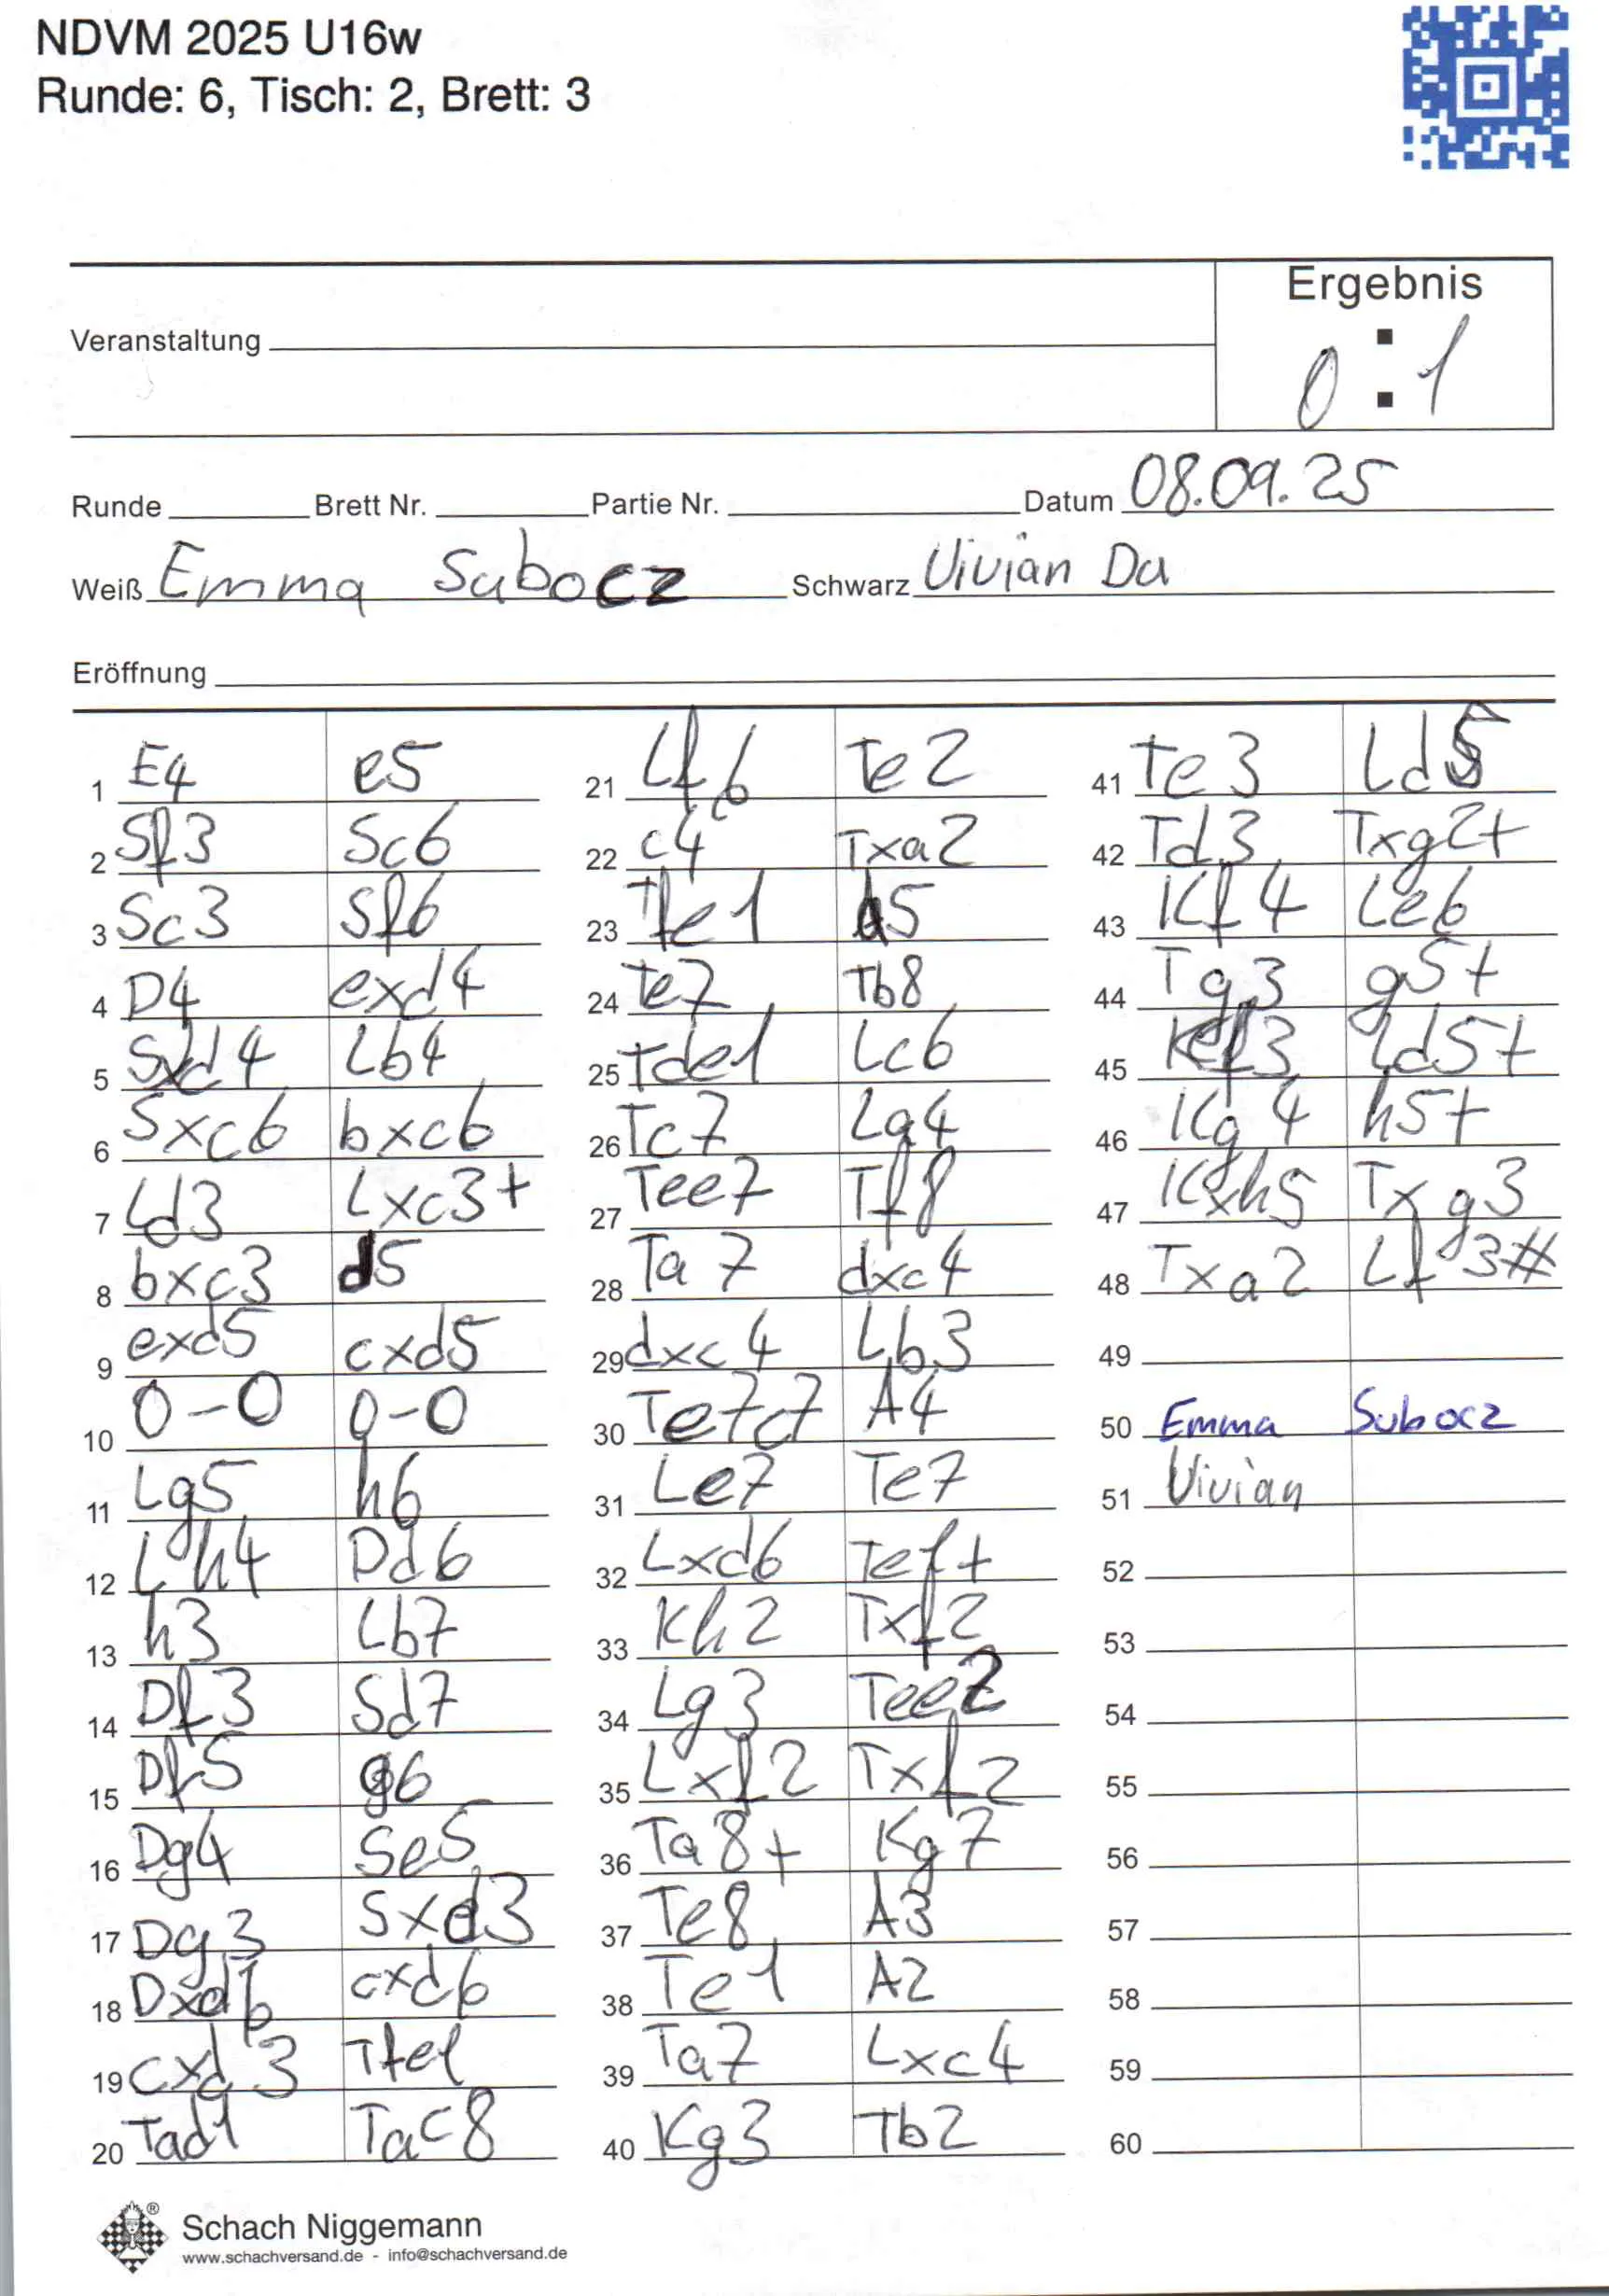 NDVM 2025 U16w
Runde: 6, Tisch: 2, Brett: 3
Ergebnis
0 : 1
Veranstaltung
Runde Brett Nr. Partie Nr. Datum 08.09.25
Weiß Emma Subocz Schwarz Vivian Da
Eröffnung
1 E4 e5
2 Sf3 Sc6
3 Sc3 Sf6
4 D4 exd4
5 Sxd4 Lb4
6 Sxc6 bxc6
7 Ld3 Lxc3+
8 bxc3 d5
9 exd5 cxd5
10 0-0 0-0
11 Lg5 h6
12 Lh4 Dd6
13 h3 Lb7
14 Df3 Sd7
15 Df5 g6
16 Dg4 Se5
17 Dg3 Sxd3
18 Dxd6 cxd6
19 cxd3 Tfe1
20 Tad1 Tac8
21 Lf6 Te2
22 c4 Txa2
23 Tfe1 a5
24 Te7 Tb8
25 Tde1 Lc6
26 Tc7 La4
27 Tee7 Tf8
28 Ta7 dxc4
29 dxc4 Lb3
30 Te7c7 A4
31 Le7 Te7
32 Lxd6 Te1+
33 Kh2 Txf2
34 Lg3 Tee2
35 Lxf2 Txf2
36 Ta8+ Kg7
37 Te8 A3
38 Te1 A2
39 Ta7 Lxc4
40 Kg3 Tb2
41 Te3 Ld5
42 Td3 Txg2+
43 Kf4 Le6
44 Tg3 g5+
45 Kf3 Ld5+
46 Kg4 h5+
47 Kxh5 Txg3
48 Txa2 Lf3#
49
50 Emma Subocz
51 Vivian
52
53
54
55
56
57
58
59
60
Schach Niggemann
www.schachversand.de - info@schachversand.de